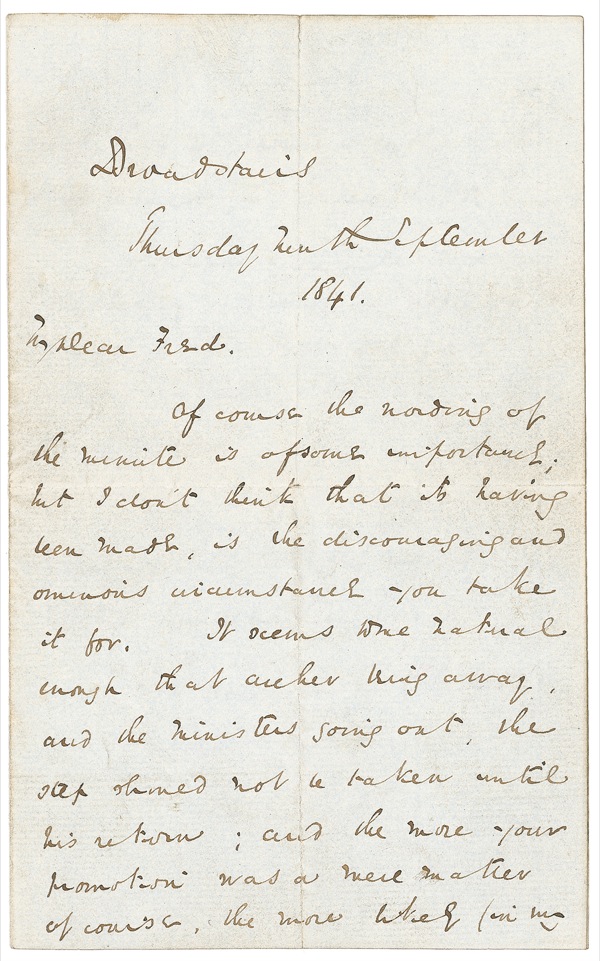 Broadstairs
Thursday Ninth September
1841.
My Dear Fred.
Of course the wording of
the minute is of some importance;
but I don't think that its having
been made, is the discouraging and
ominous circumstance you take
it for. It seems to me natural
enough that Archer being away,
and the ministers going out, the
step should not be taken until
his return; and the more your
promotion was a mere matter
of course, the more likely (in my